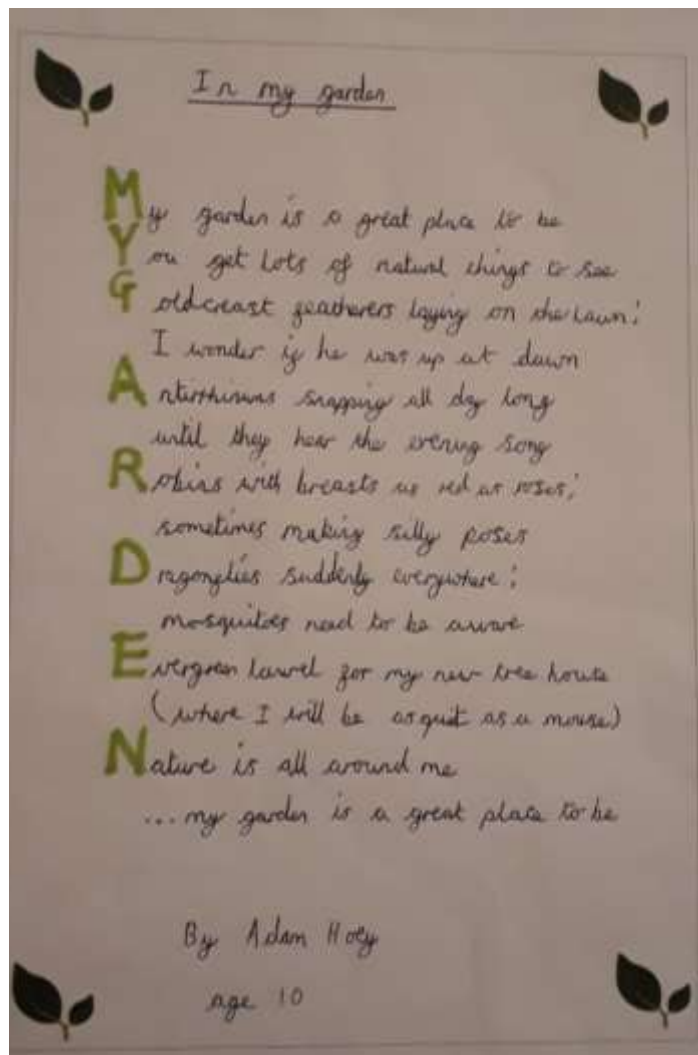 In my garden
My garden is a great place to be
You get lots of natural things to see
Goldcreast featherers laying on the lawn;
I wonder if he was up at dawn
Anterrhinums snapping all day long
until they hear the evening song
Robins with breasts as red as roses;
sometimes making silly poses
Dragonflies suddenly everywhere;
mosquitoes need to be aware
Evergreen laurel for my new tree house
(where I will be as quit as a mouse)
Nature is all around me
...my garden is a great place to be
By Adam Hoey
age 10